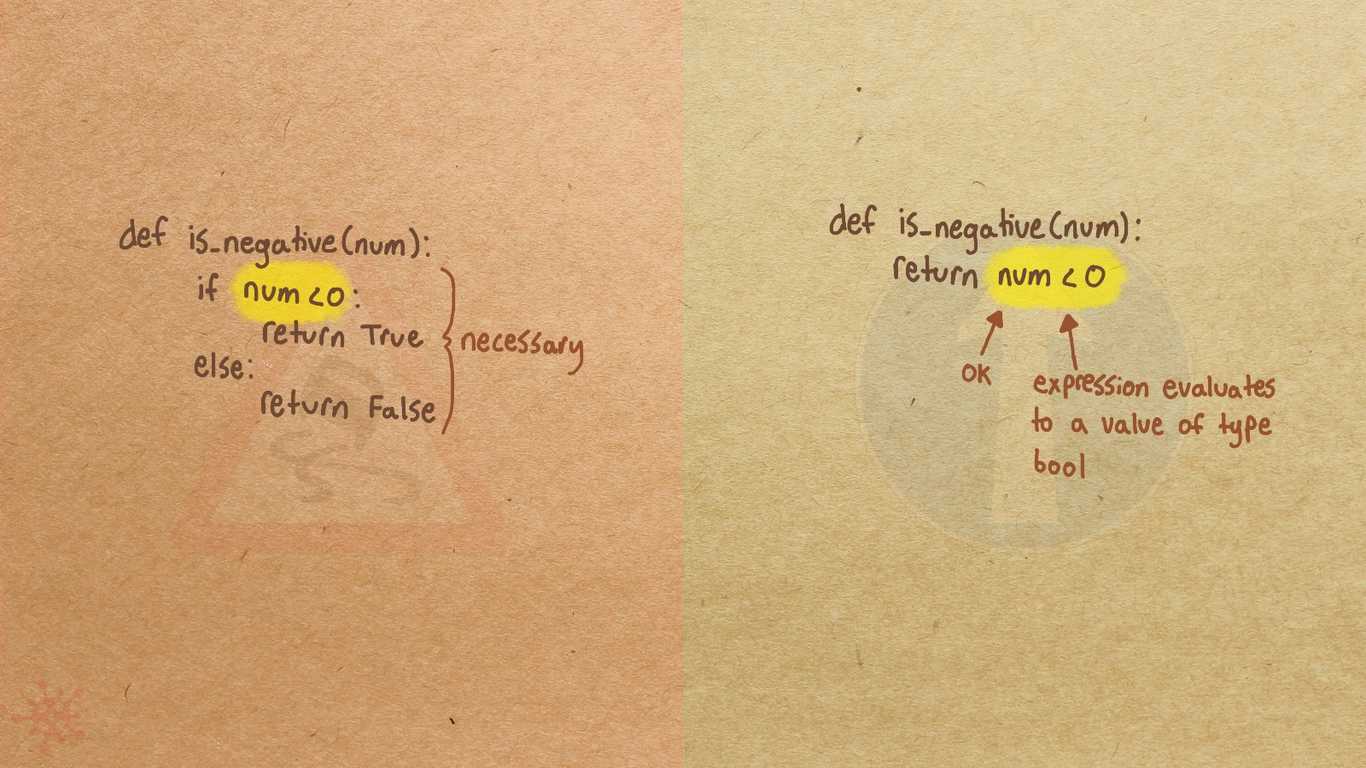 def is_negative(num):
if num < 0:
return True
else:
return False
necessary
def is_negative(num):
return num < 0
OK
expression evaluates
to a value of type
bool